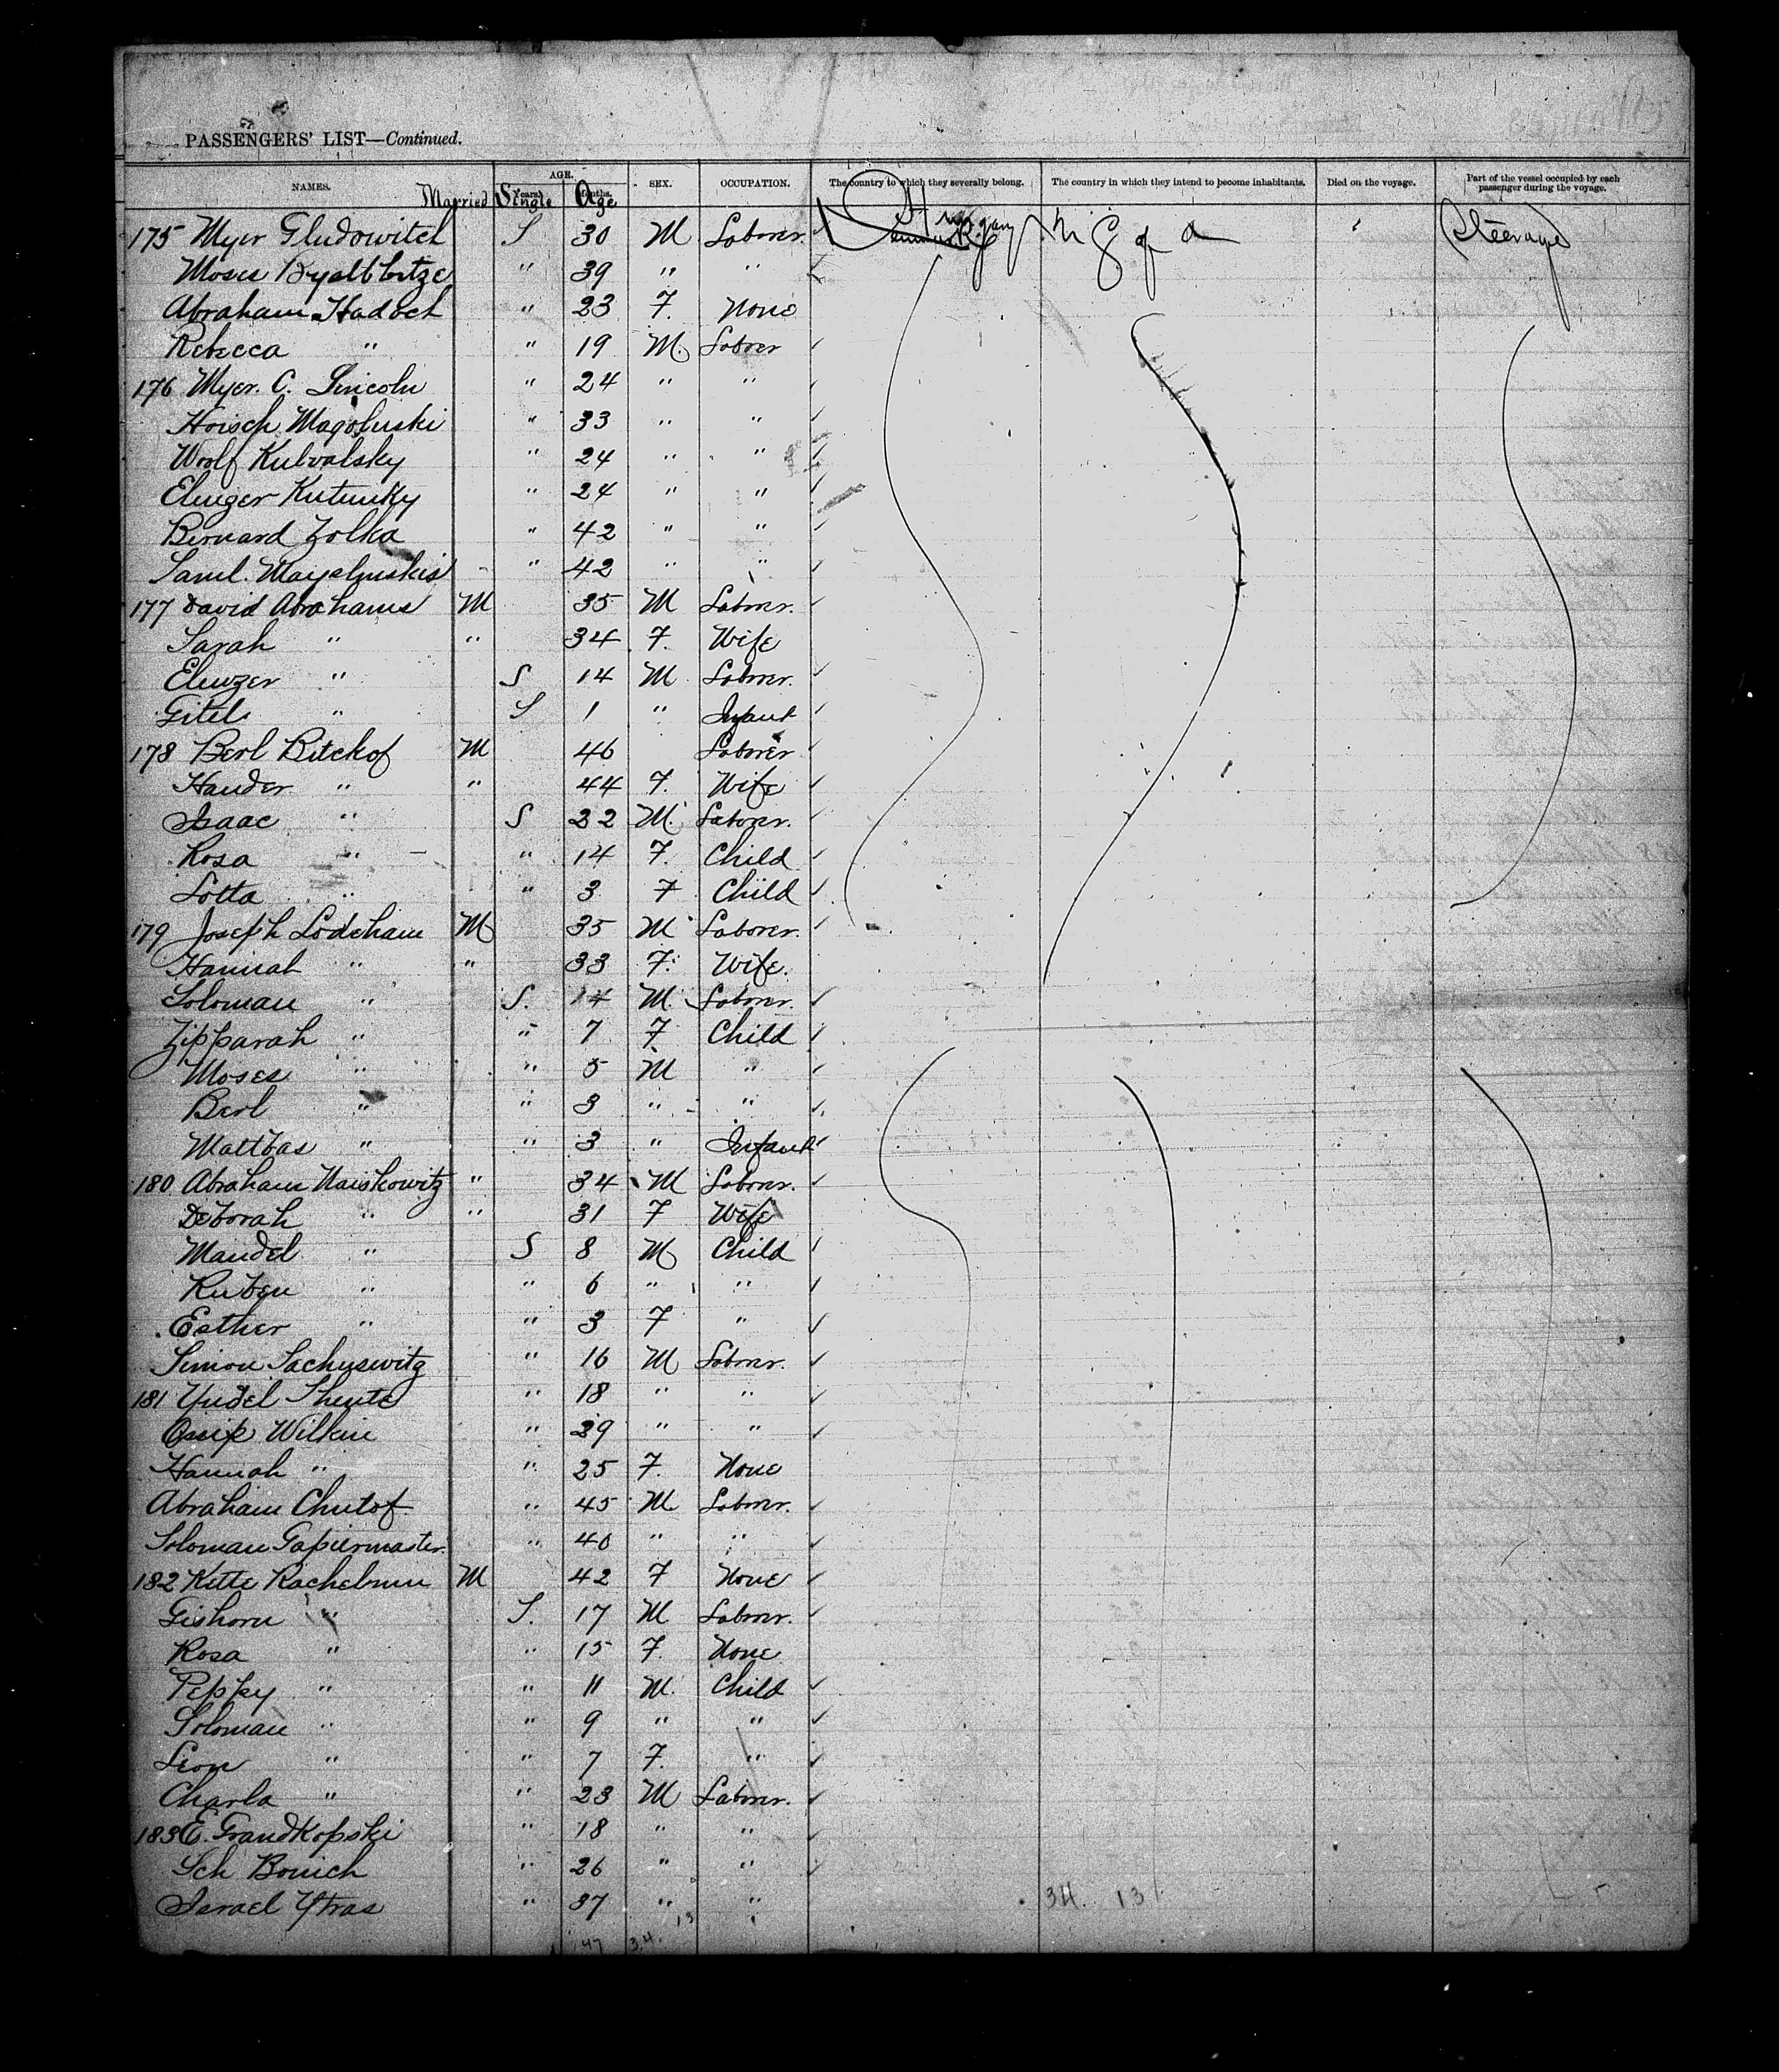 PASSENGERS' LIST—Continued.
NAMES. Married AGE. Years. Single Months. Age SEX. OCCUPATION. The country to which they severally belong. The country in which they intend to become inhabitants. Died on the voyage. Part of the vessel occupied by each passenger during the voyage.
175 Myer Gludowitch S 30 M Laborer. Hungary U S of a Steerage
Moses " 39 " "
Abraham Hadoch " 23 F. None
Rebecca " " 19 M. Laborer
176 Myer. C. Lincoln " 24 " "
Hoisch Magoluski " 33 " "
Woolf Kulvalsky " 24 " "
Eleuzer Kutunky " 24 " "
Bernard Zolka " 42 " "
Saml. Mayelmskis " 42 " "
177 David Abrahams M 35 M Laborer.
Sarah " " 34 F. Wife
Eleuzer " S 14 M Laborer.
Gitel " S 1 " Infant
178 Berl Bitckof M 46 Laborer
Hander " " 44 F. Wife
Isaac " S 22 M. Laborer.
Rosa " " 14 F. Child
Lotta " " 3 F Child
179 Joseph Lodeham M 35 M Laborer.
Hannah " " 33 F. Wife.
Soloman " S. 14 M. Laborer.
Zipparah " " 7 F Child
Moses " " 5 M "
Berl " " 3 " "
Mattbas " " 3 " Infant
180 Abraham Naiskowitz " 34 M Laborer.
Deborah " " 31 F Wife
Mandel " S 8 M Child
Ruben " " 6 " "
Esther " " 3 F "
Simon Sachuswitz " 16 M Laborer.
181 Yudel Shute " 18 " "
Ossip Wilkin " 29 " "
Hannah " " 25 F. None
Abraham Chutof " 45 M Laborer.
Soloman Gapiermaster. " 40 " "
182 Kette Rachelmn M 42 F None
Gishorn " S. 17 M Laborer.
Rosa " " 15 F. None
Peppy " " 11 M. Child
Soloman " " 9 " "
Leon " " 7 F. "
Charla " " 23 M Laborer.
183 E. Grandkopski " 18 " "
Sch Bonich " 26 " "
Israel Ytras " 37 " "
34. 13
47 34. 13